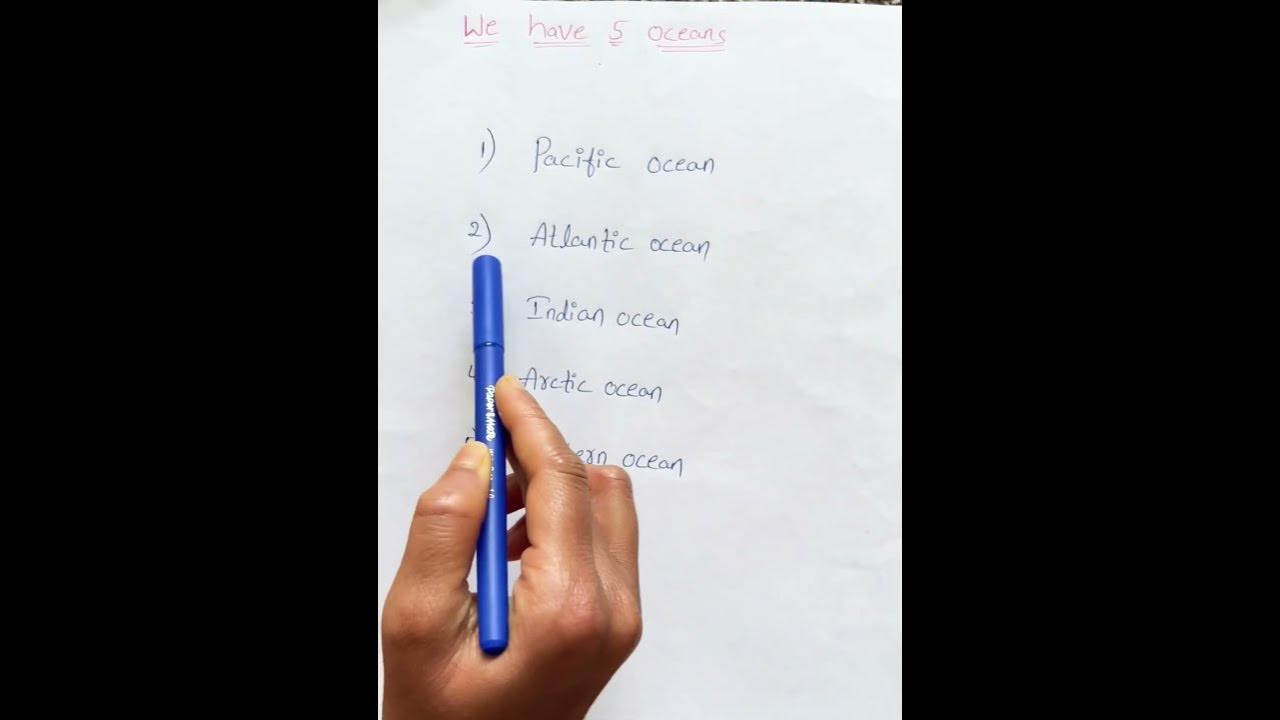 We have 5 oceans
1) Pacific ocean
2) Atlantic ocean
Indian ocean
Arctic ocean
ern ocean